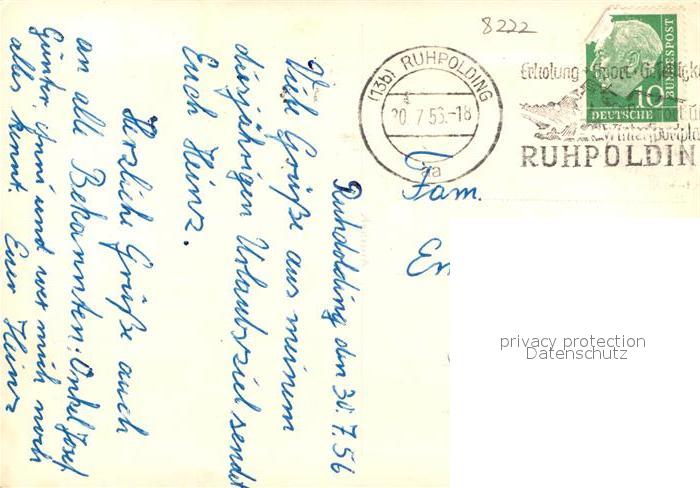 8222
(13b) RUHPOLDING
20.7.56-18
aa
Erholung · Sport · Geselligke
Wintersportpla
RUHPOLDIN
10
DEUTSCHE
BUNDESPOST
Fam.
Ruhpolding den 30.7.56
Viele Grüße aus meinem
diesjährigen Urlaubsziel sendet
Euch Heinz.
Herzliche Grüße auch
an alle Bekannten: Onkel Josef
Günter, und wer mich noch
alles kennt. Euer Heinz
privacy protection
Datenschutz